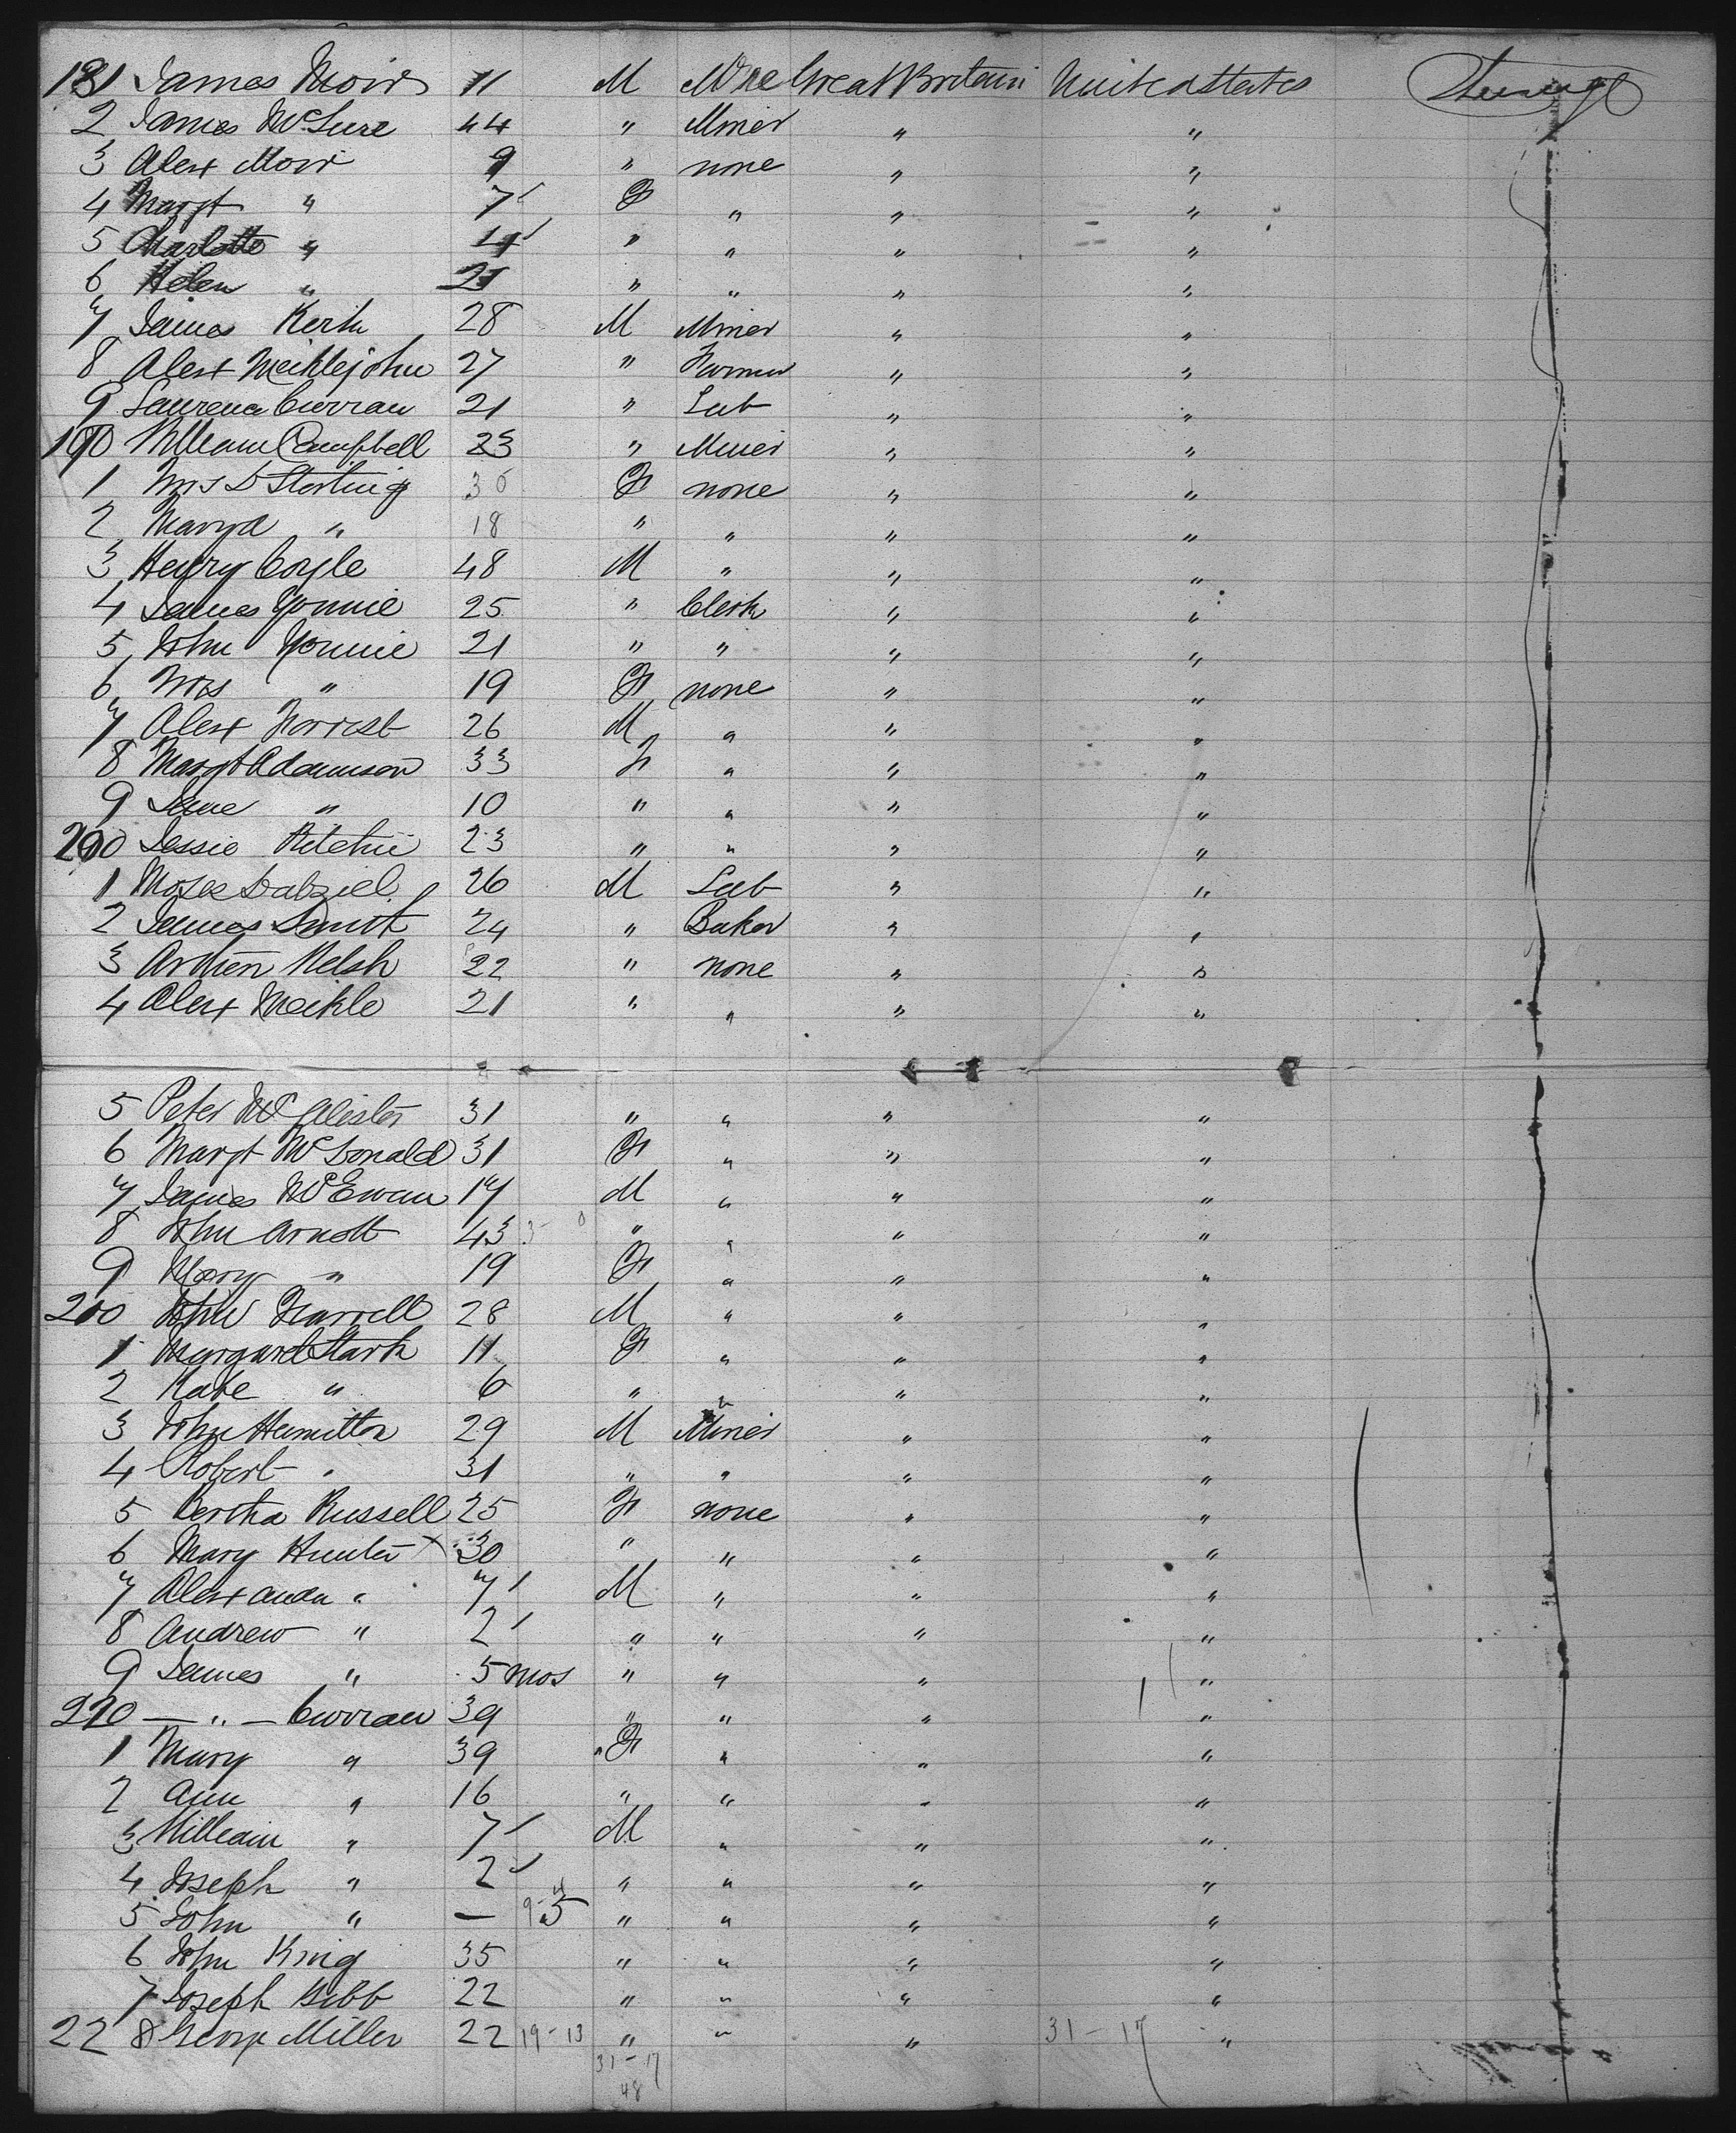 181 James Moir 11 M None Great Britain United States Steerage
2 James McLure 44 " Miner " "
3 Alex Moir 9 " none " "
4 Margt " 7 F " " "
5 Charlotte " 11 " " " "
6 Helen " 21 " " " "
7 James Keith 28 M Miner " "
8 Alex Meiklejohn 27 " Farmer " "
9 Laurence Curran 21 " Lab " "
190 William Campbell 23 " Miner " "
1 Mrs D Sterling 30 F none " "
2 Mary " 18 " " " "
3 Henry Coyle 48 M " " "
4 James Yonnie 25 " Clerk " "
5 John Yonnie 21 " " " "
6 Mrs " 19 F none " "
7 Alex Forrest 26 M " " "
8 Margt Adamson 33 F " " "
9 Jane " 10 " " " "
200 Jessie Ritchie 23 " " " "
1 Moses Dalziel 26 M Lab " "
2 James Smith 24 " Baker " "
3 Welsh 22 " none " "
4 Alex Meikle 21 " " " "
5 Peter McAlister 31 " " " "
6 Margt McDonald 31 F " " "
7 James McEwan 17 M " " "
8 John Arnott 43 " " " "
9 Mary " 19 F " " "
210 John Farrell 28 M " " "
1 Margaret Stark 11 F " " "
2 Kate " 6 " " " "
3 John Hamilton 29 M Miner " "
4 Robert " 31 " " " "
5 Bertha Russell 25 F none " "
6 Mary Hunter x 30 " " " "
7 Alexander " 7 M " " "
8 Andrew " 2 " " " "
9 James " 5 mos " " " "
220 — " — Curran 39 " " " "
1 Mary " 39 " F " " "
2 Ann " 16 " " " "
3 William " 7 M " " "
4 Joseph " 2 " " " "
5 John " — 9 - 5 " " " "
6 John King 35 " " " "
7 Joseph Gibb 22 " " " "
22 8 George Miller 22 19 - 13 " " " 31 - 17 "
31 - 17
48